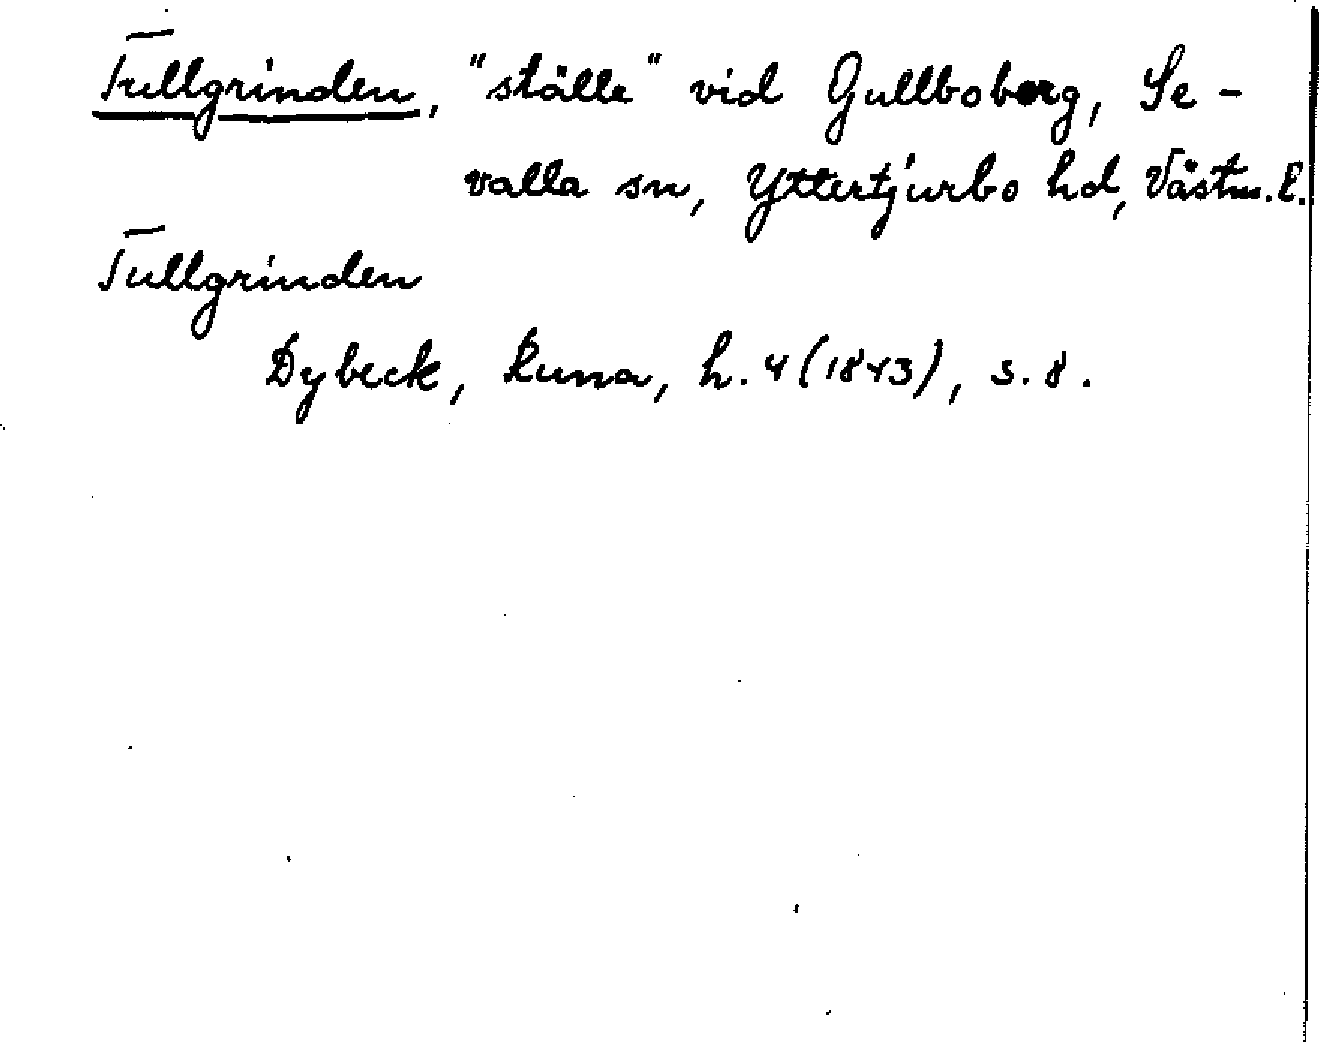 Tullgrinden, "ställe" vid Gullboberg, Se-
valla sn, Yttertjurbo hd, Västm. l.
Tullgrinden
Dybeck, Runa, h. 4 (1843), s. 8.